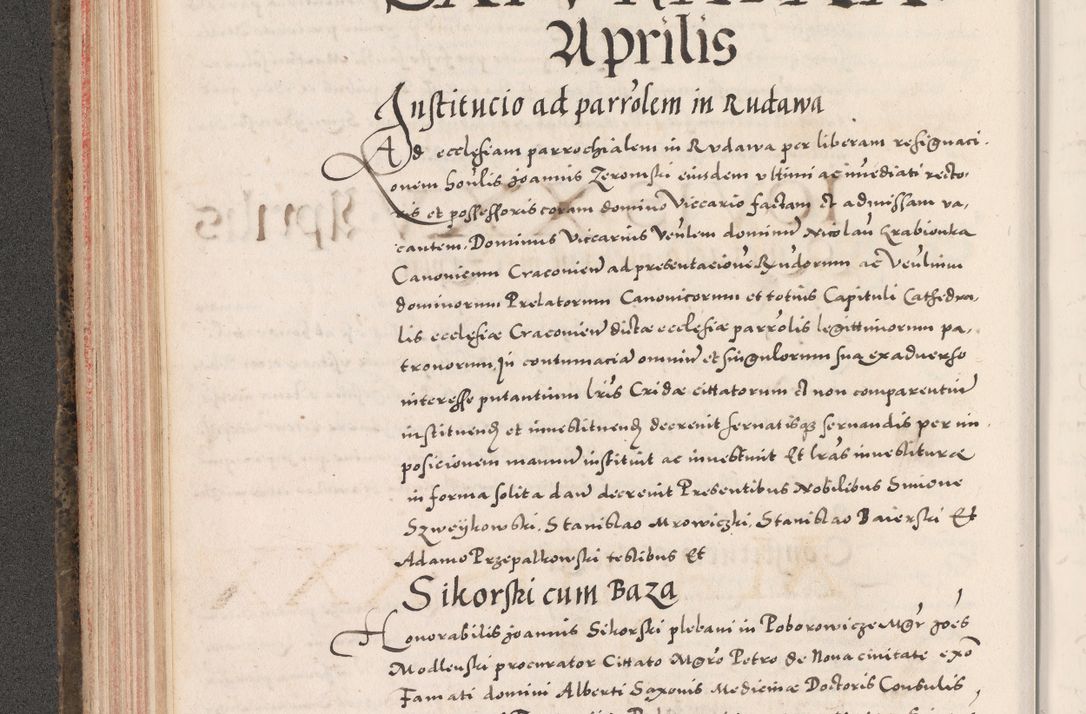 Aprilis
Institucio ad parrolem in Rudawa
Ad ecclesiam parrochialem in Rvdawa per liberam resignaci,
onem honlis Joannis Zeromski eiusdem vltimi ac imediati recto,
ris et possessoris coram domino Viccario factam et admissam va,
cantem, Dominus Viccarius Venlem dominum Nicolau Krabionka
Canonicum Cracovien ad presentacione Rndorum ac Venlium
dominorum Prelatorum Canonicorum et totius Capituli Cathedra,
lis ecclesiæ Cracovien dictæ ecclesiæ parrolis legittimorum pa,
tronorum, in contumacia omniu et singulorum sua ex adverso
interesse putantium lris Cridæ cittatorum et non comparentiu
instituend et investituend decrevit servatisque servandis per im
posicionem manuu instituit ac investivit Et lras investituræ
in forma solita dari decrevit Presentibus Nobilibus Simone
Szweykowski, Stanislao Mrowiczki, Stanislao Baierski Et
Adamo Przepalkowski testibus Et
Sikorski cum Baza
Honorabilis Joannis Sikorski plebani in Poborowicze Mgr Joes
Modlenski procurator Cittato Mgro Petro de Nova civitate exo
Famati domini Alberti Saxonis Medicinæ Doctoris Consulis